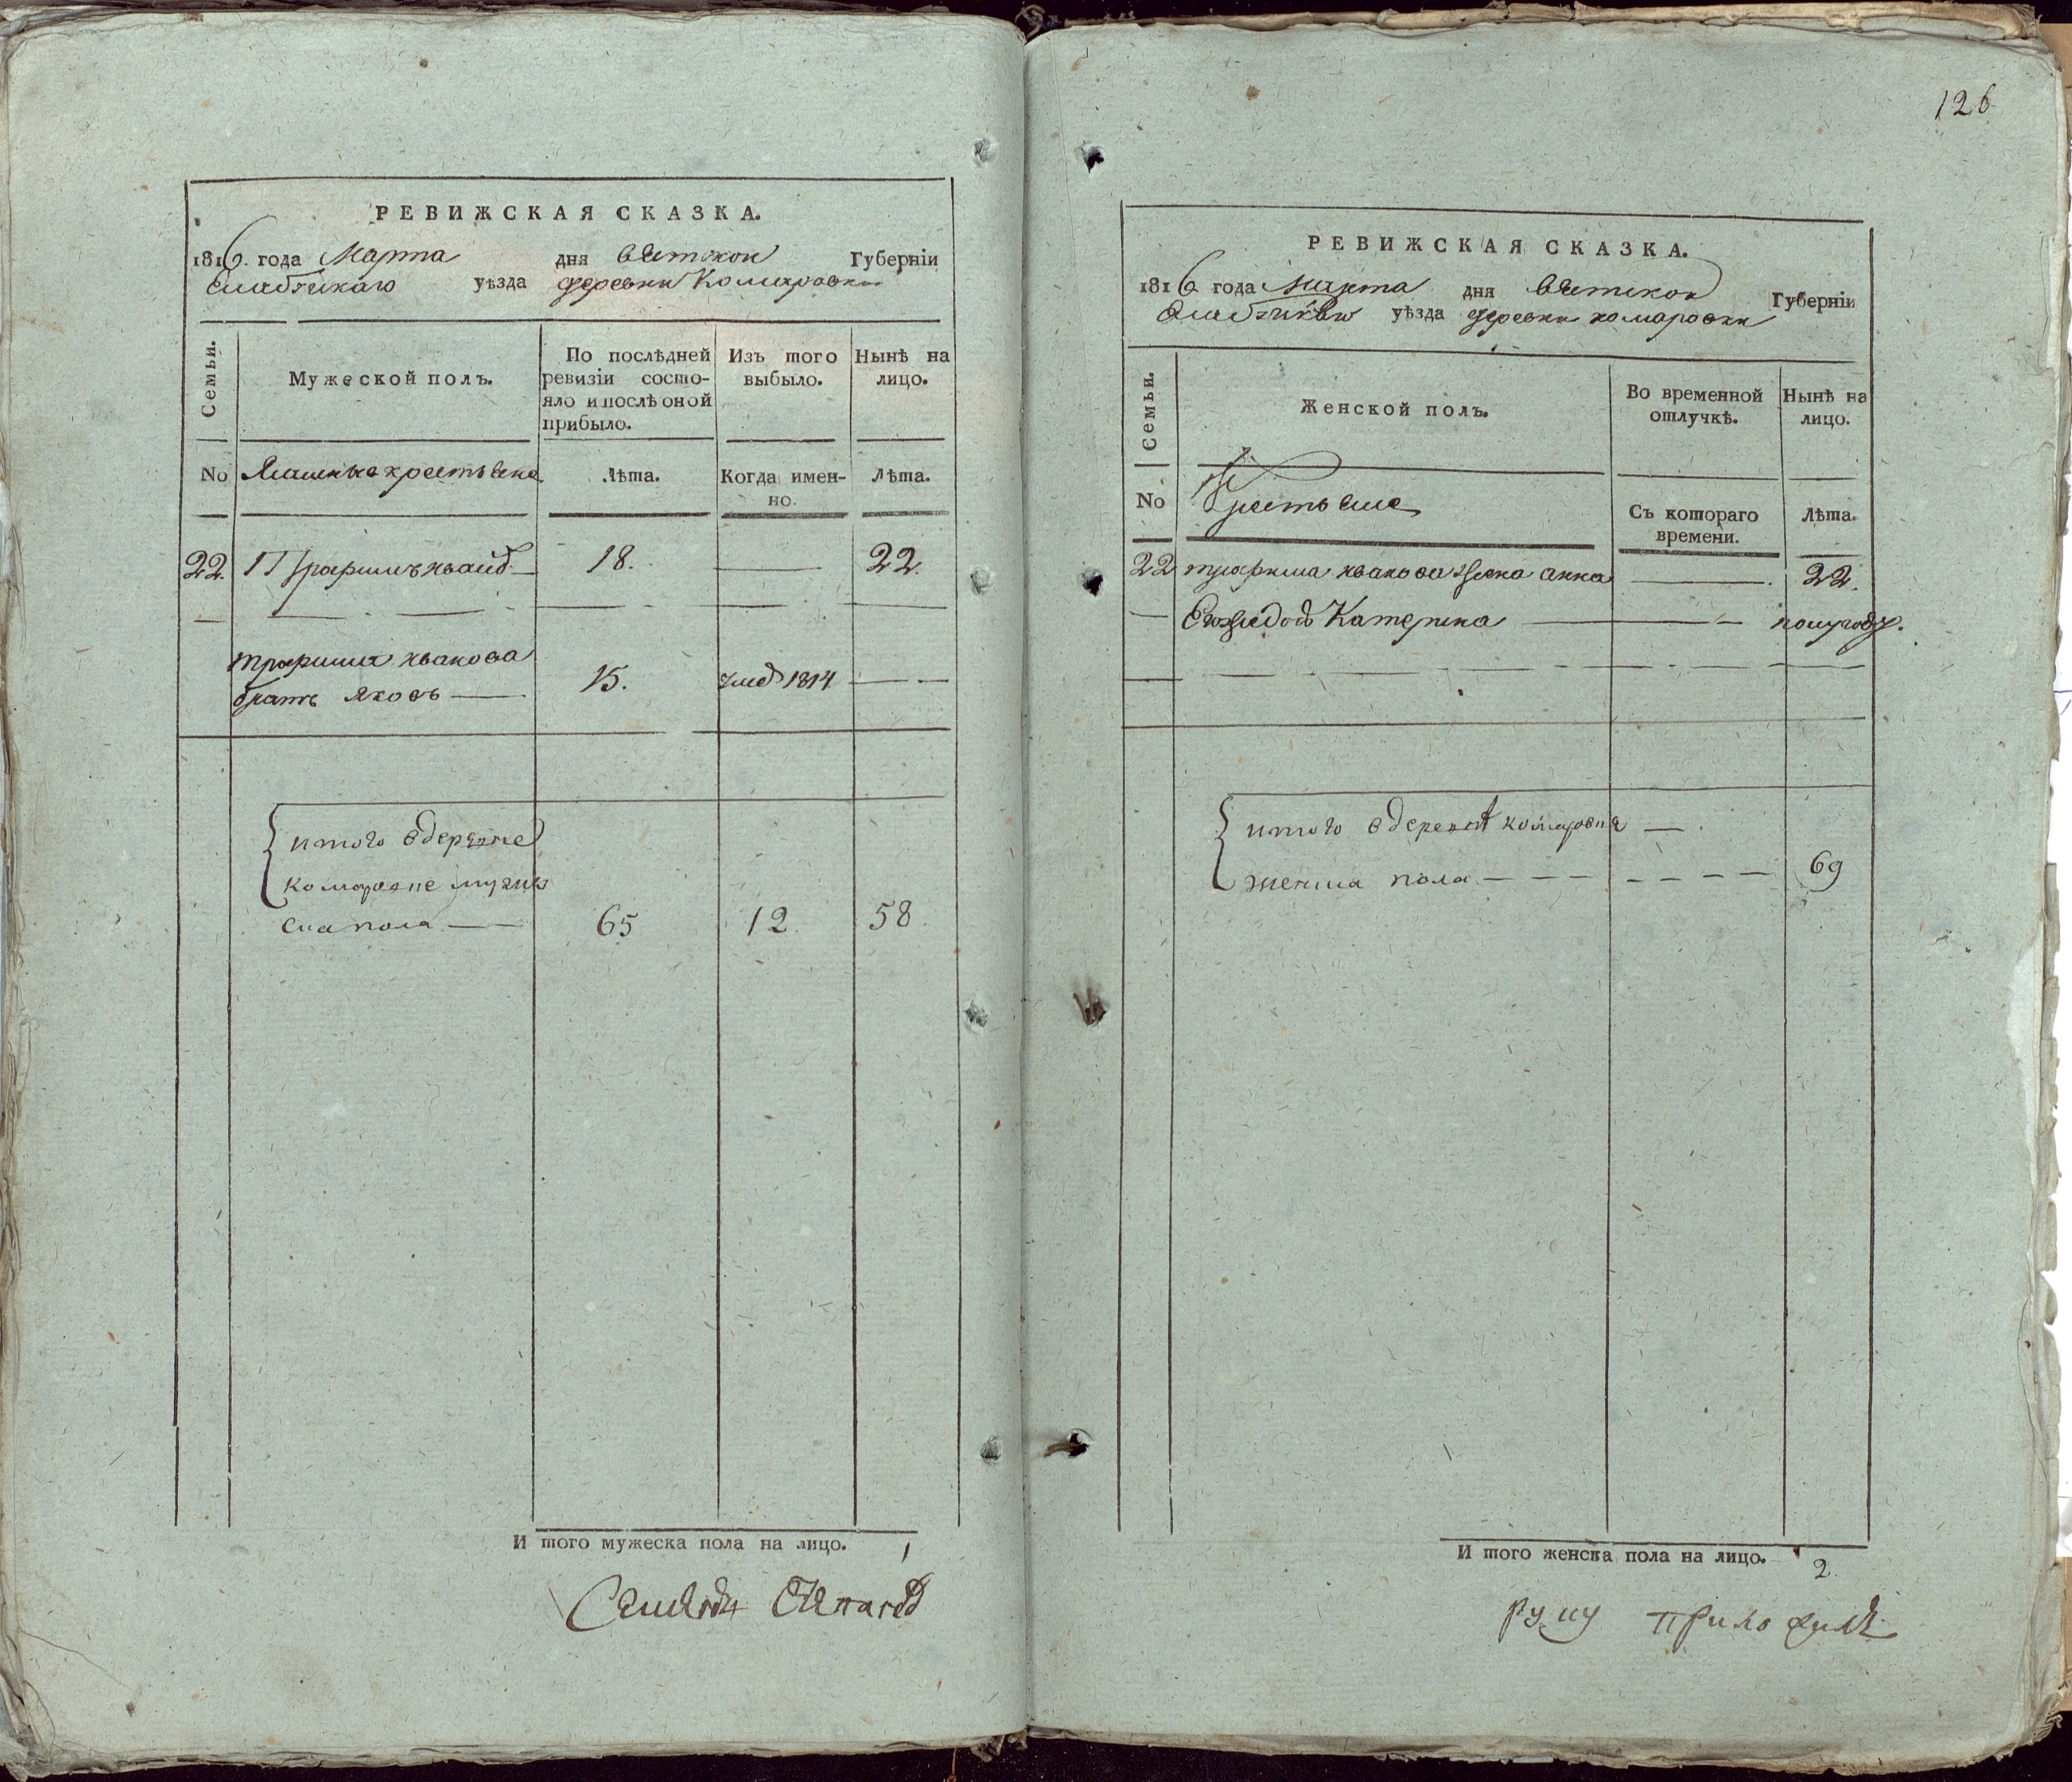 РЕВИЖСКАЯ СКАЗКА.
1816 года Марта дня вятской Губерніи
Елабужскаго уѣзда деревни Комаровки
Семьи.
Мужеской полъ.
По послѣдней ревизіи состо-
яло и послѣ оной прибыло.
Изъ того выбыло.
Нынѣ на лицо.
No крестьяне Лѣта. Когда имен-
но. Лѣта.
22 Трофимъ Иванов 18. 22.
трофима иванова
братъ яковъ 15. 1814
итого в деревне
комаровке мужес
ка пола 65 12 58
И того мужеска пола на лицо. 1
126
РЕВИЖСКАЯ СКАЗКА.
1816 года Марта дня вятской Губерніи
Елабужскаго уѣзда деревни комаровки
Семьи.
Женской полъ.
Во временной отлучкѣ.
Нынѣ на лицо.
No Крестьяне Съ котораго
времени. Лѣта.
22 трофима иванова жена анна 22.
Его же дочь Катерина полугоду.
итого в деревнѣ комаровке
женска пола 69
И того женска пола на лицо. 2
руку приложилъ